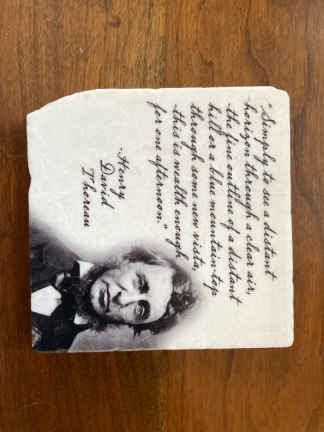 "Simply to see a distant
horizon through a clear air,
the fine outline of a distant
hill or a blue mountain-top
through some new vista,
this is wealth enough
for one afternoon."
-Henry
David
Thoreau